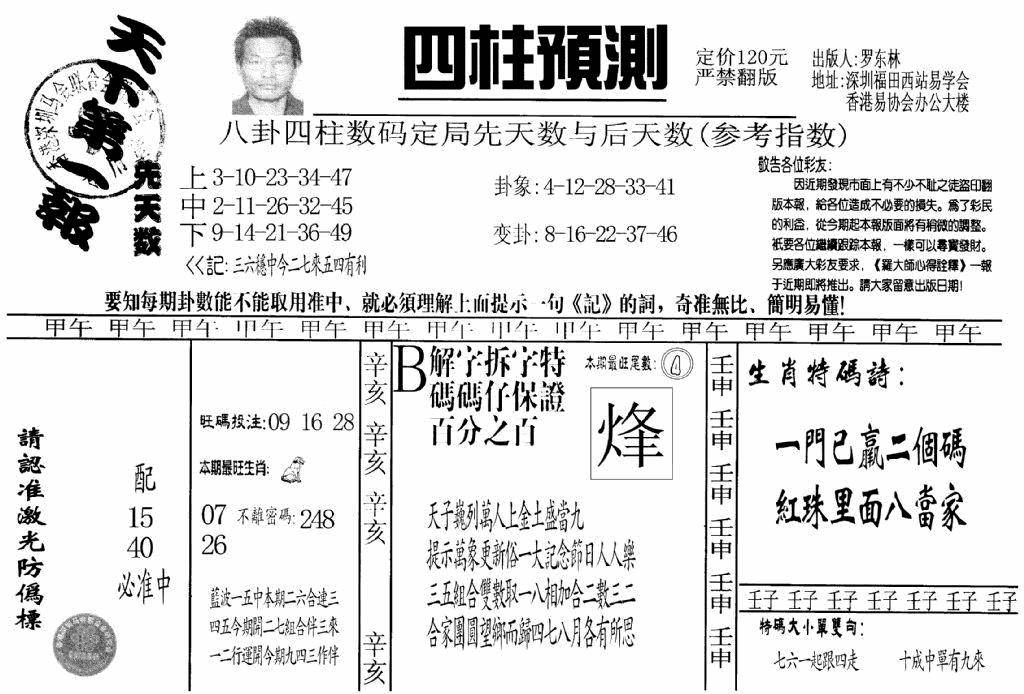 天下第一報
先天数
四柱預测
定价120元
严禁翻版
出版人:罗东林
地址:深圳福田西站易学会
香港易协会办公大楼
八卦四柱数码定局先天数与后天数(参考指数)
上 3-10-23-34-47
中 2-11-26-32-45
下 9-14-21-36-49
<<記:三六穩中今二七來五四有利
卦象:4-12-28-33-41
变卦:8-16-22-37-46
敬告各位彩友:
因近期發現市面上有不少不耻之徒盜印翻
版本報,給各位造成不必要的損失。爲了彩民
的利益,從今期起本報版面將有稍微的調整。
衹要各位繼續跟踪本報,一樣可以尋寶發財。
另應廣大彩友要求,《羅大師心得詮釋》一報
于近期即將推出。請大家留意出版日期!
要知每期卦數能不能取用准中、就必須理解上面提示一句《記》的詞,奇准無比、簡明易懂!
甲午 甲午 甲午 甲午 甲午 甲午 甲午 甲午 甲午 甲午 甲午 甲午 甲午 甲午 甲午
請認准激光防僞標
配
15
40
必准中
旺碼投注:09 16 28
本期最旺生肖:
07 不離密碼:248
26
藍波一五中本期二六合連三
四五今期開二七組合伴三來
一二行運開今期九四三作伴
辛亥 辛亥 辛亥 辛亥
B 解字拆字特
碼碼仔保證
百分之百
本期最旺尾數:
烽
天子巍列萬人上金土盛當九
提示萬象更新俗一大記念節日人人樂
三五組合雙數取一八相加合二數三二
合家團圓望鄉而歸四七八月各有所思
壬申 壬申 壬申 壬申 壬申 壬申
生肖特碼詩:
一門已贏二個碼
紅珠里面八當家
壬子 壬子 壬子 壬子 壬子 壬子 壬子
特碼大小單雙句:
七六一起跟四走 十成中單有九來